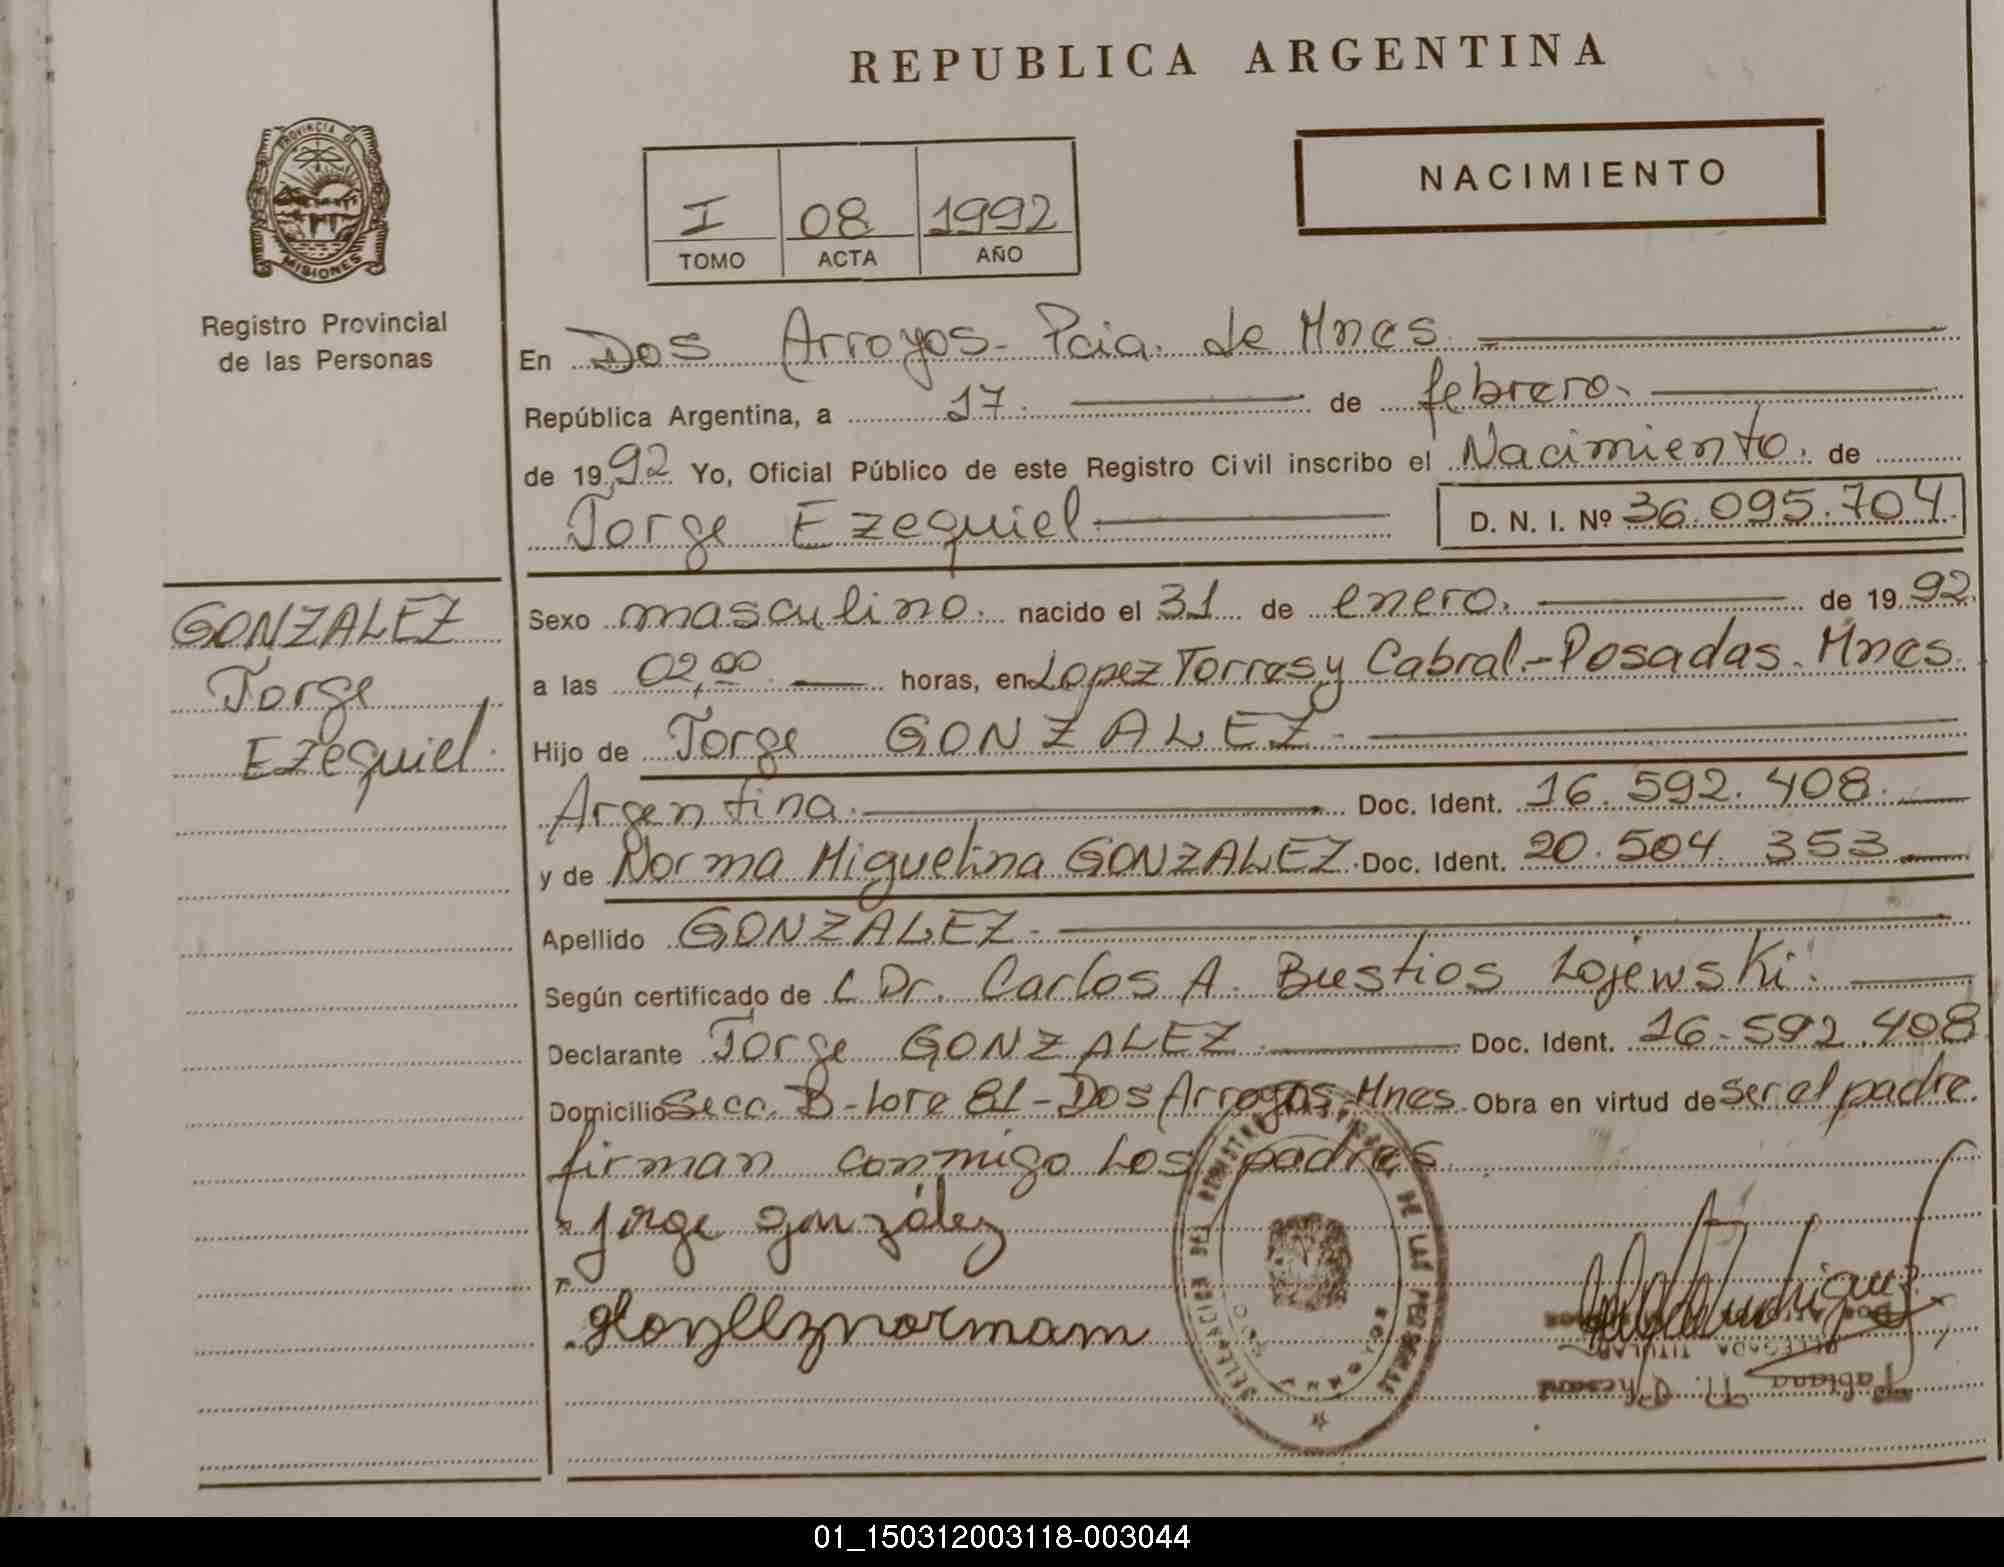 REPUBLICA ARGENTINA
NACIMIENTO
PROVINCIA DE
MISIONES
I 08 1992
TOMO ACTA AÑO
Registro Provincial
de las Personas
En Dos Arroyos - Pcia. de Mnes
República Argentina, a 17. de febrero.
de 1992 Yo, Oficial Público de este Registro Civil inscribo el Nacimiento. de
Jorge Ezequiel D. N. I. Nº 36.095.704
GONZALEZ
Jorge
Ezequiel.
Sexo masculino. nacido el 31 de enero. de 1992
a las 02,00 horas, en Lopez Torres y Cabral - Posadas. Mnes.
Hijo de Jorge GONZALEZ.
Argentina. Doc. Ident. 16.592.408.
y de Norma Miguelina GONZALEZ. Doc. Ident. 20.504.353
Apellido GONZALEZ.
Según certificado de Dr. Carlos A. Bustios Lojewski.
Declarante Jorge GONZALEZ. Doc. Ident. 16.592.408
Domicilio Secc. B - Lote 81 - Dos Arroyos, Mnes. Obra en virtud de ser el padre.
firman conmigo los padres
Jorge González
DELEGADA TITULAR
01_150312003118-003044